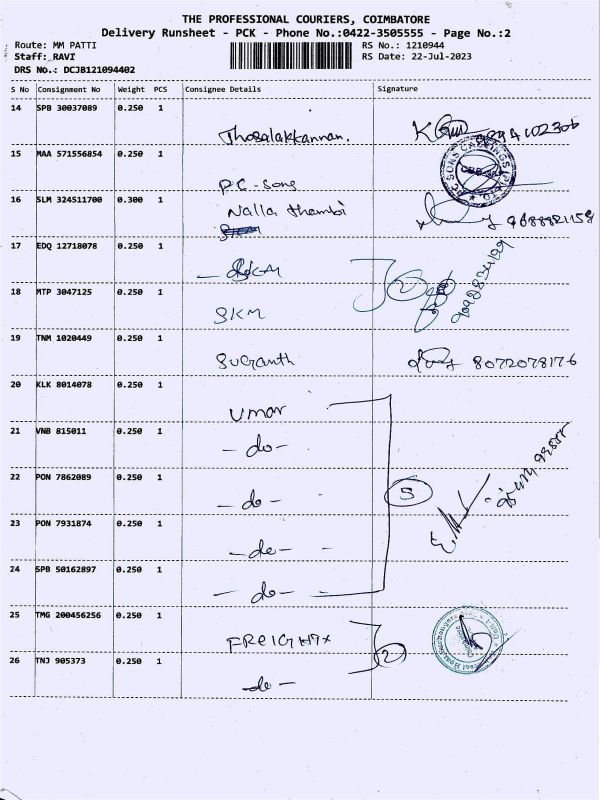 THE PROFESSIONAL COURIERS, COIMBATORE
Delivery Runsheet - PCK - Phone No.:0422-3505555 - Page No.:2
Route: MM PATTI
RS No.: 1210944
Staff: RAVI
RS Date: 22-Jul-2023
DRS No.: DCJB121094402
S No Consignment No Weight PCS Consignee Details Signature
14 SPB 30037089 0.250 1
15 MAA 571556854 0.250 1
P.C-Sons
16 SLM 324511700 0.300 1
Nalla thambi
9688821158
17 EDQ 12718078 0.250 1
18 MTP 3047125 0.250 1
2
SKM
19 TNM 1020449 0.250 1
Suganth 8072078176
20 KLK 8014078 0.250 1
Umar
21 VNB 815011 0.250 1
- do -
22 PON 7862089 0.250 1
5
- do -
23 PON 7931874 0.250 1
- do -
24 SPB 50162897 0.250 1
- do -
25 TMG 200456256 0.250 1
2
26 TNJ 905373 0.250 1
- do -